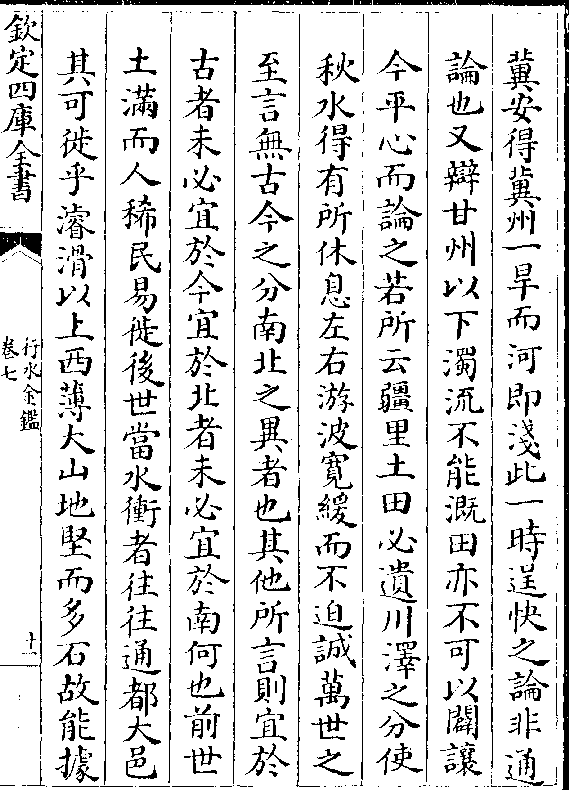 冀安得冀州一旱而河即淺此一時逞快之論非通
論也又辯甘州以下濁流不能溉田亦不可以闢讓
今平心而論之若所云疆里土田必遺川澤之分使
秋水得有所休息左右游波寛緩而不迫誠萬世之
至言無古今之分南北之異者也其他所言則宜於
古者未必宜於今宜於北者未必宜於南何也前世
土滿而人稀民易徙後世當水衝者往往通都大邑
其可徙乎濬滑以上西薄大山地堅而多石故能據
欽定四庫全書
行水金鑑
卷七
十一